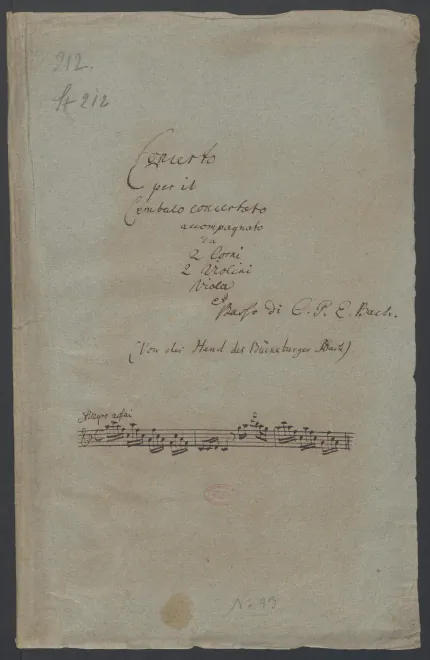 212.
St 212
Concerto
per il
Cembalo concertato
accompagnato
da
2 Corni
2 Violini
Viola
e
Basso di C. P. E. Bach.
(Von der Hand des Bückeburger Bach)
Allegro assai
No 93